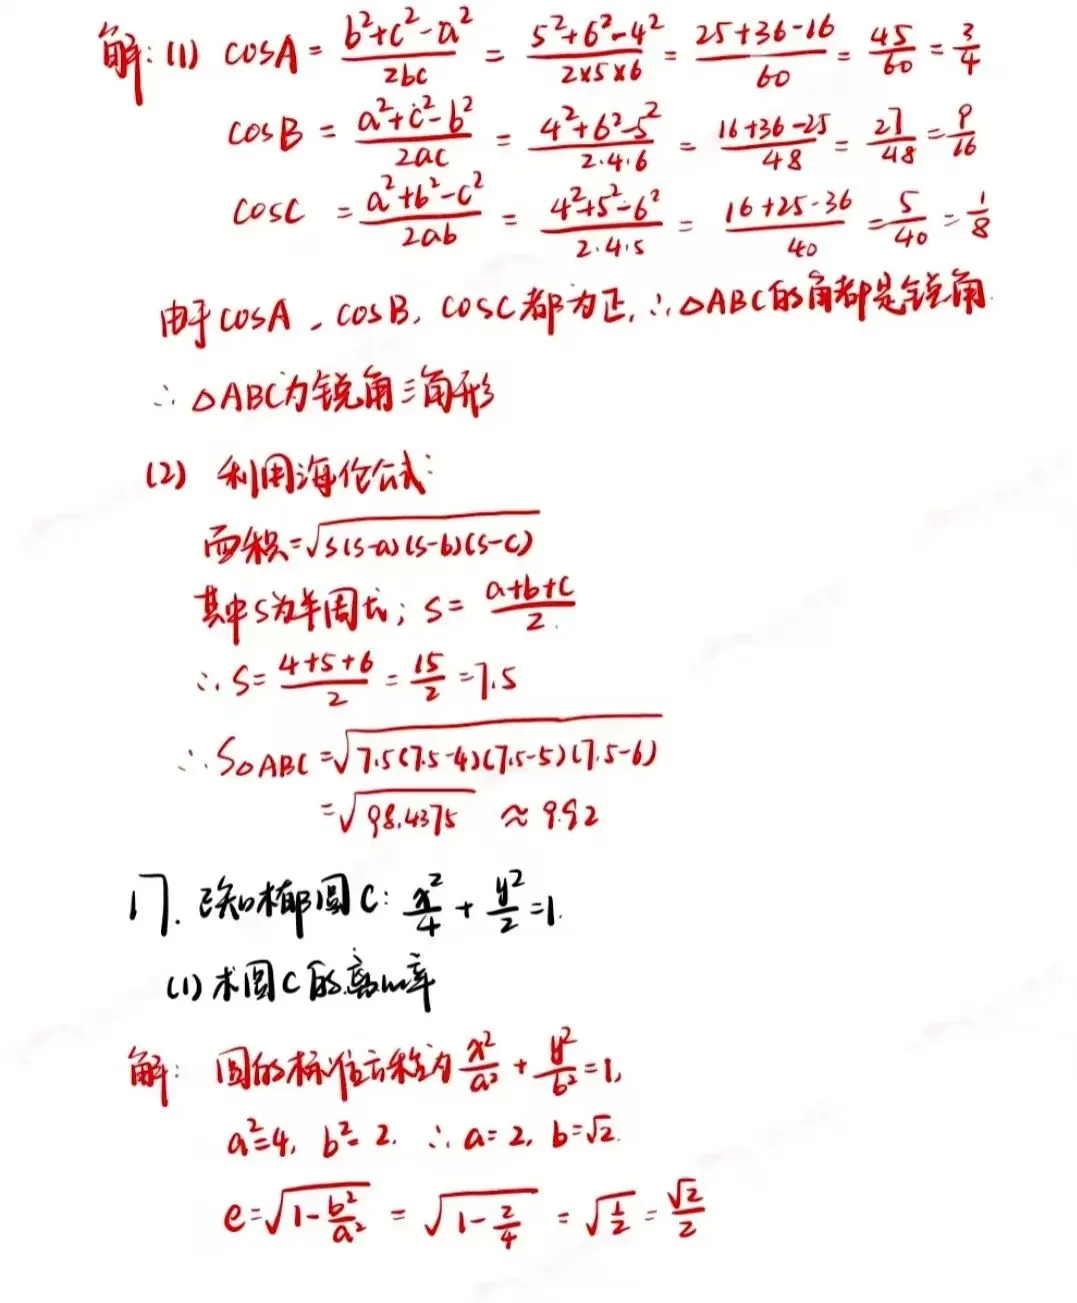 解: (1) cosA = \frac{b²+c²-a²}{2bc} = \frac{5²+6²-4²}{2×5×6} = \frac{25+36-16}{60} = \frac{45}{60} = \frac{3}{4}
cosB = \frac{a²+c²-b²}{2ac} = \frac{4²+6²-5²}{2·4·6} = \frac{16+36-25}{48} = \frac{27}{48} = \frac{9}{16}
cosC = \frac{a²+b²-c²}{2ab} = \frac{4²+5²-6²}{2·4·5} = \frac{16+25-36}{40} = \frac{5}{40} = \frac{1}{8}
由于cosA, cosB, cosC都为正, ∴△ABC的角都是锐角.
∴ △ABC为锐角三角形
(2) 利用海伦公式:
面积=√(s(s-a)(s-b)(s-c))
其中s为半周长; s= \frac{a+b+c}{2}.
∴ s= \frac{4+5+6}{2} = \frac{15}{2} =7.5
∴ S△ABC =√(7.5(7.5-4)(7.5-5)(7.5-6))
=√98.4375 ≈ 9.92
17. 已知椭圆C: \frac{x²}{4} + \frac{y²}{2} =1.
(1) 求圆C的离心率
解: 圆的标准方程为 \frac{x²}{a²} + \frac{y²}{b²} =1,
a²=4, b²=2. ∴ a=2, b=√2.
e=√(1-\frac{b²}{a²}) = √(1-\frac{2}{4}) = √\frac{1}{2} = \frac{√2}{2}